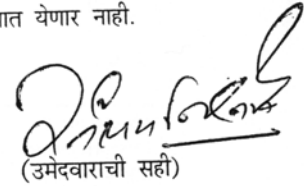 ात येणार नाही.
(उमेदवाराची सही)